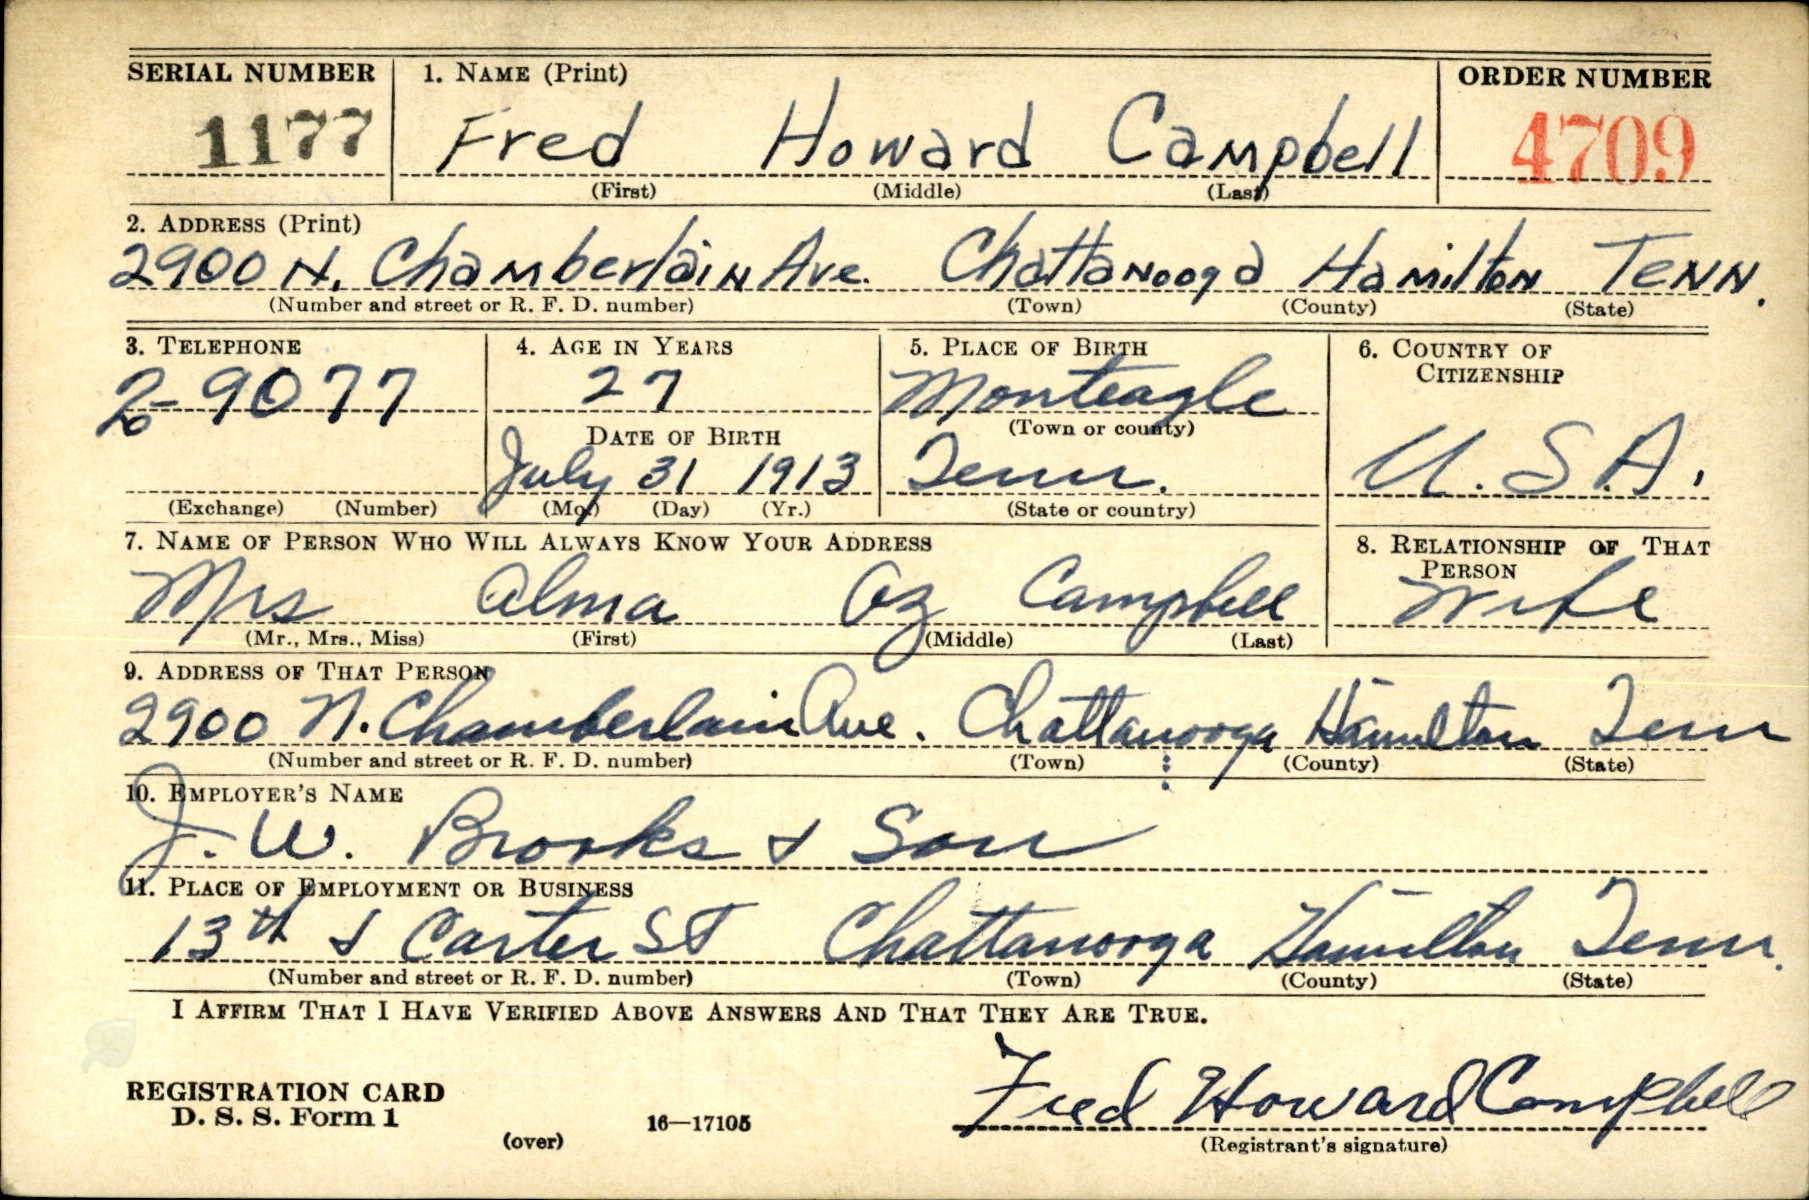 SERIAL NUMBER 1. NAME (Print) ORDER NUMBER
1177 Fred Howard Campbell 4709
(First) (Middle) (Last)
2. ADDRESS (Print)
2900 N. Chamberlain Ave. Chattanooga Hamilton Tenn.
(Number and street or R. F. D. number) (Town) (County) (State)
3. TELEPHONE 4. AGE IN YEARS 5. PLACE OF BIRTH 6. COUNTRY OF CITIZENSHIP
2-9077 27 Monteagle
(Town or county)
DATE OF BIRTH
July 31 1913 Tenn. U.S.A.
(Exchange) (Number) (Mo.) (Day) (Yr.) (State or country)
7. NAME OF PERSON WHO WILL ALWAYS KNOW YOUR ADDRESS 8. RELATIONSHIP OF THAT PERSON
Mrs Alma Oz Campbell Wife
(Mr., Mrs., Miss) (First) (Middle) (Last)
9. ADDRESS OF THAT PERSON
2900 N. Chamberlain Ave. Chattanooga Hamilton Tenn
(Number and street or R. F. D. number) (Town) (County) (State)
10. EMPLOYER'S NAME
J. W. Brooks & Son
11. PLACE OF EMPLOYMENT OR BUSINESS
13th & Carter St Chattanooga Hamilton Tenn.
(Number and street or R. F. D. number) (Town) (County) (State)
I AFFIRM THAT I HAVE VERIFIED ABOVE ANSWERS AND THAT THEY ARE TRUE.
Fred Howard Campbell
REGISTRATION CARD
D. S. S. Form 1 16—17105
(over) (Registrant's signature)